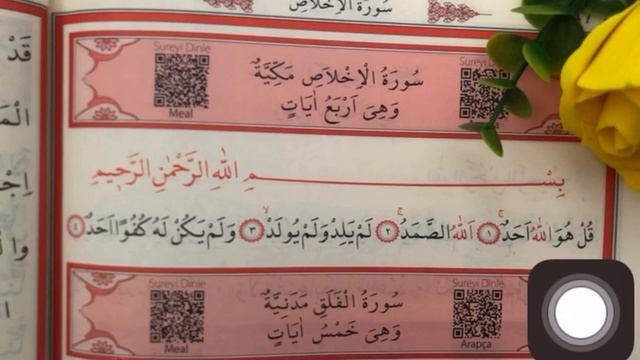 سُورَةُ الْاِخْلَاصِ
Sureyi Dinle
Sureyi Dinle
سُورَةُ الْاِخْلَاصِ مَكِّيَّةٌ
وَهِىَ اَرْبَعُ اٰيَاتٍ
Meal
بِسْمِ اللّٰهِ الرَّحْمٰنِ الرَّحٖيمِ
قُلْ هُوَ اللّٰهُ اَحَدٌۚ ١ اَللّٰهُ الصَّمَدُۚ ٢ لَمْ يَلِدْ وَلَمْ يُولَدْۙ ٣ وَلَمْ يَكُنْ لَهُ كُفُوًا اَحَدٌ ٤
Sureyi Dinle
Sureyi Dinle
سُورَةُ الْفَلَقِ مَدَنِيَّةٌ
وَهِىَ خَمْسُ اٰيَاتٍ
Meal
Arapça
قَدْ